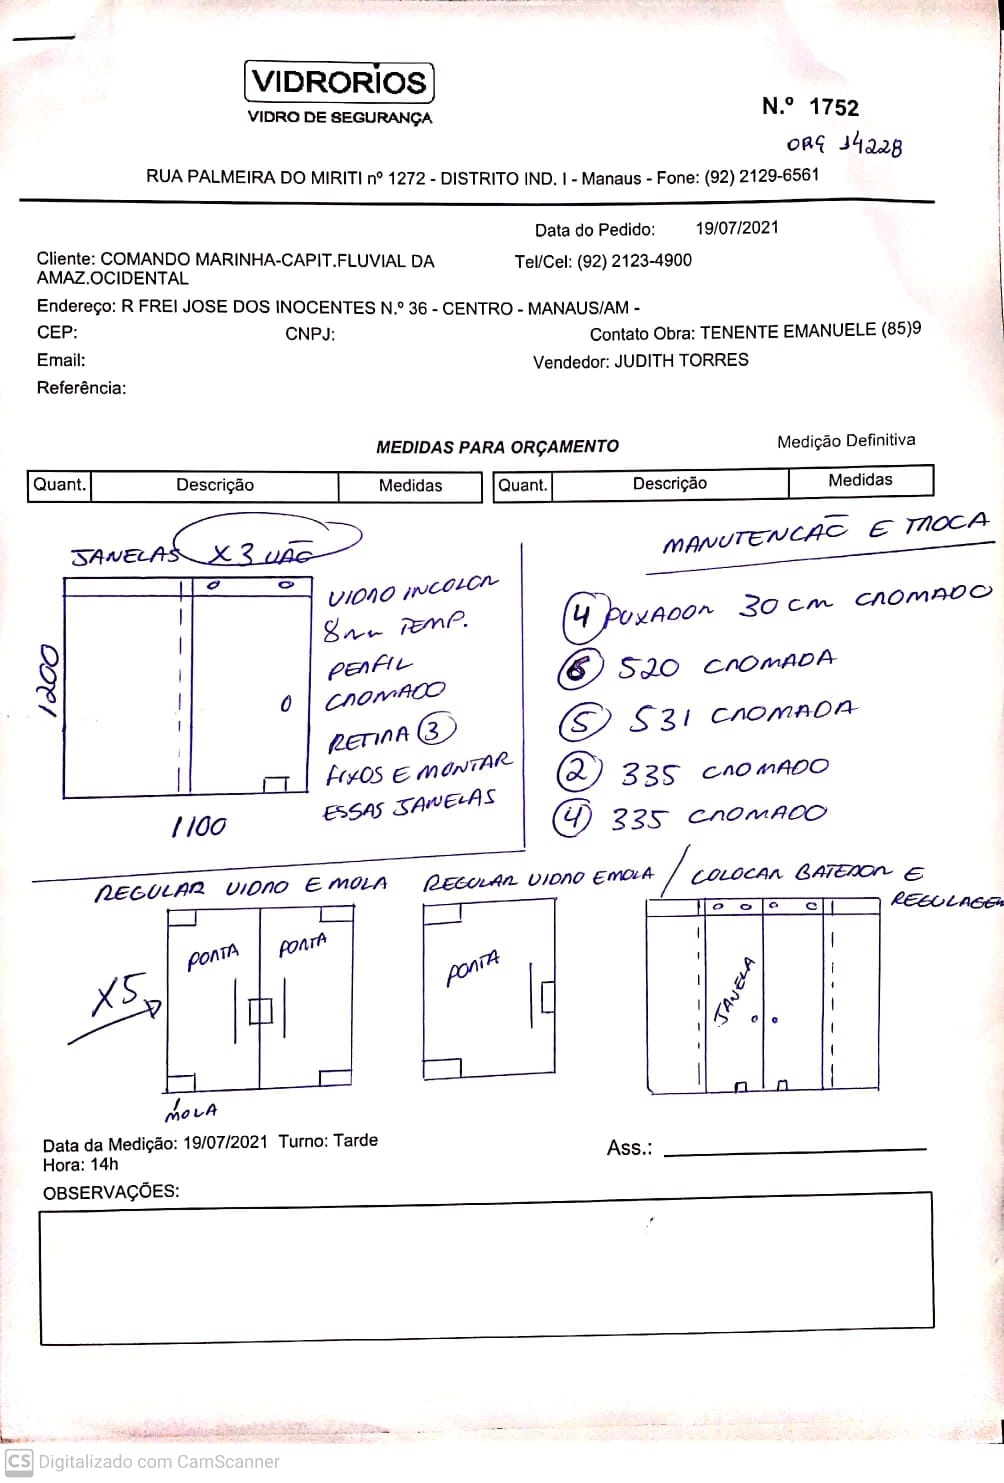 VIDRORIOS
VIDRO DE SEGURANÇA
N.º 1752
ORÇ 14228
RUA PALMEIRA DO MIRITI nº 1272 - DISTRITO IND. I - Manaus - Fone: (92) 2129-6561
Data do Pedido: 19/07/2021
Cliente: COMANDO MARINHA-CAPIT.FLUVIAL DA
AMAZ.OCIDENTAL
Tel/Cel: (92) 2123-4900
Endereço: R FREI JOSE DOS INOCENTES N.º 36 - CENTRO - MANAUS/AM -
CEP:
CNPJ:
Contato Obra: TENENTE EMANUELE (85)9
Email:
Vendedor: JUDITH TORRES
Referência:
MEDIDAS PARA ORÇAMENTO
Medição Definitiva
Quant. Descrição Medidas
Quant. Descrição Medidas
JANELAS X 3 VÃO
1200
1100
VIDRO INCOLOR
8mm TEMP.
PERFIL
CROMADO
RETIRA 3
FIXOS E MONTAR
ESSAS JANELAS
MANUTENCÃO E TROCA
4 PUXADOR 30 cm CROMADO
6 520 CROMADA
5 531 CROMADA
2 335 CROMADO
4 335 CROMADO
REGULAR VIDRO E MOLA
X5
PORTA PORTA
MOLA
REGULAR VIDRO E MOLA
PORTA
/ COLOCAR BATEDOR E
REGULAGEM
JANELA
Data da Medição: 19/07/2021 Turno: Tarde
Hora: 14h
Ass.:
OBSERVAÇÕES:
CS Digitalizado com CamScanner